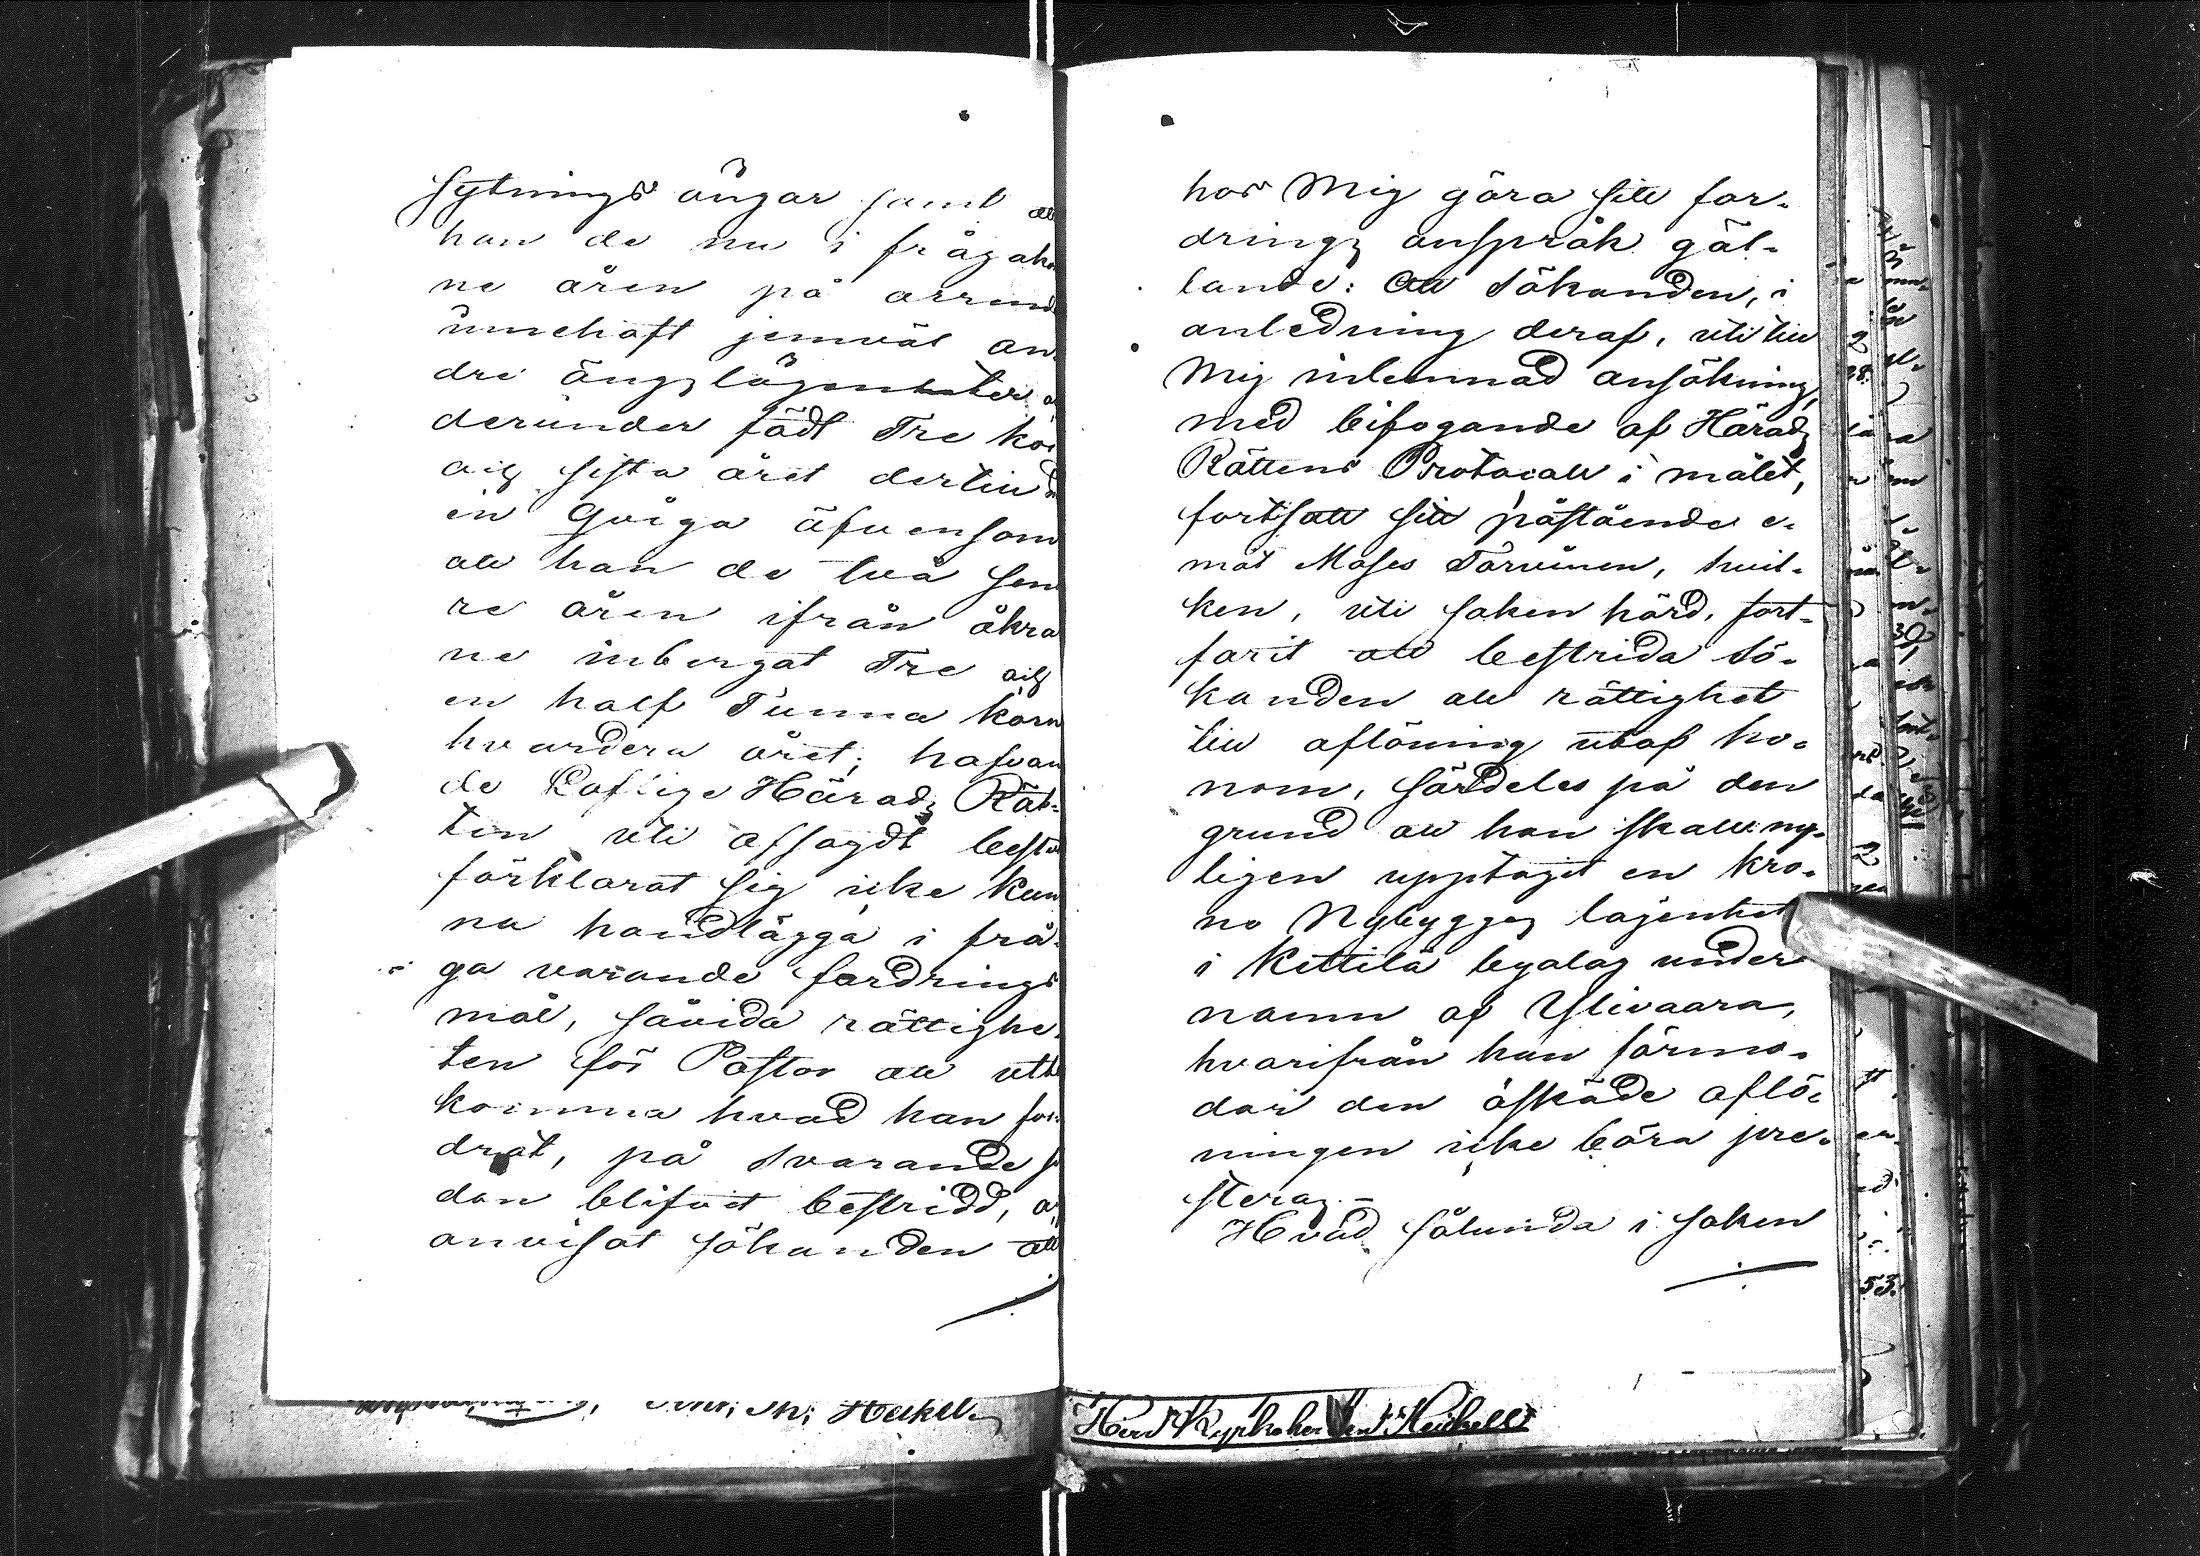 sytnings ängar samt att
han de nu i frågak
ne åren på arrend
innehaft jemväl an
dre ängslägenheter,
derunder födt Tre kor
och sista året dertill
en Qviga äfvensom
att han de två sen
re åren ifrån åkra
ne inbergat Tre och
en half Tunna korn
hvardera året; hafvan
de Loflige Härads Rät-
ten uti afsagdt beslut
förklarat sig icke kun
na handlägga i frå-
ga varande fordrings
mål, såvida rättighe-
ten för Pastor att utbe
komma hvad han for-
drat, på svarande si
dan blifvit bestridd, och
anvisat sökanden att
hos Mig göra sitt for-
drings anspråk gäl-
lande: Att Sökanden, i
anledning deraf, uti till
Mig inlemnad ansökning,
med bifogande af Härads
Rättens Protocoll i målet,
fortsatt sitt påstående e-
mot Moses Törvinen, hvil-
ken, uti saken hörd, fort-
farit att bestrida Sö-
kanden all rättighet
till aflöning utaf ho-
nom, särdeles på den
grund att han skall ny-
ligen upptagit en kro-
no Nybygges lägenhet
i Kittilä byalag under
namn af Ylivaara,
hvarifrån han förmo-
dar den äskade aflö-
ningen icke böra pre-
steras.-
Hvad sålunda i saken
Heikel.
Herd Kyrkoherden Heickell
53.